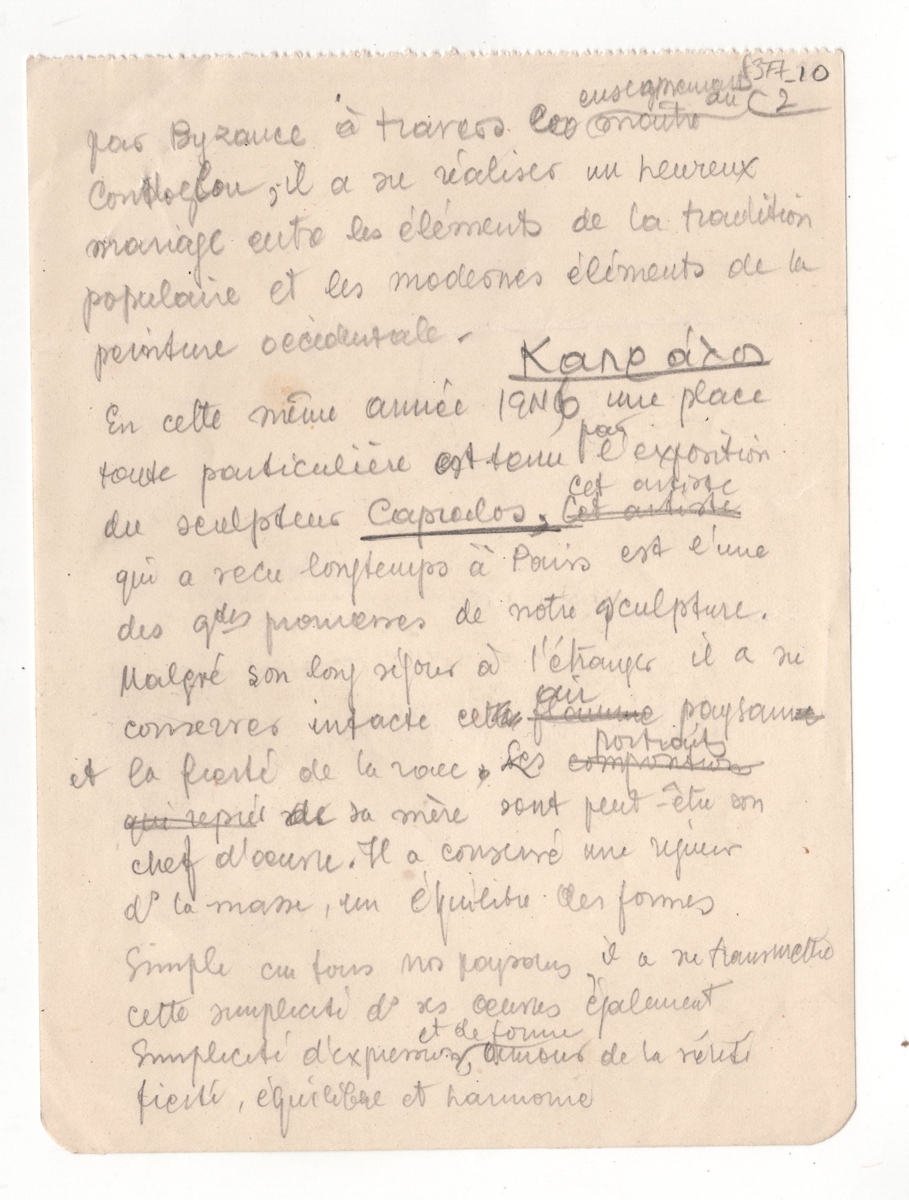 377-10
C 2
enseignements du
par Byzance à travers les maître
Contoglou, il a su réaliser un heureux
mariage entre les éléments de la tradition
populaire et les modernes éléments de la
peinture occidentale.
Καπράλος
En cette même année 1946 une place
toute particulière est tenue par l'exposition
du sculpteur Capralos, cet artiste
cet artiste
qui a vecu longtemps à Paris est l'une
des gdes promesses de notre sculpture.
Malgré son long séjour à l'étranger il a su
conserver intacte cette flamme paysanne
et la fierté de la race. Les portraits
compositions
qui repré de sa mère sont peut-être son
chef d'œuvre. Il a conservé une
ds la masse, un équilibre des formes
Simple cm tous nos paysans il a su transmettre
cette simplicité ds ses œuvres également
et de forme
Simplicité d'expression, amour de la vérité
fierté, équilibre et harmonie